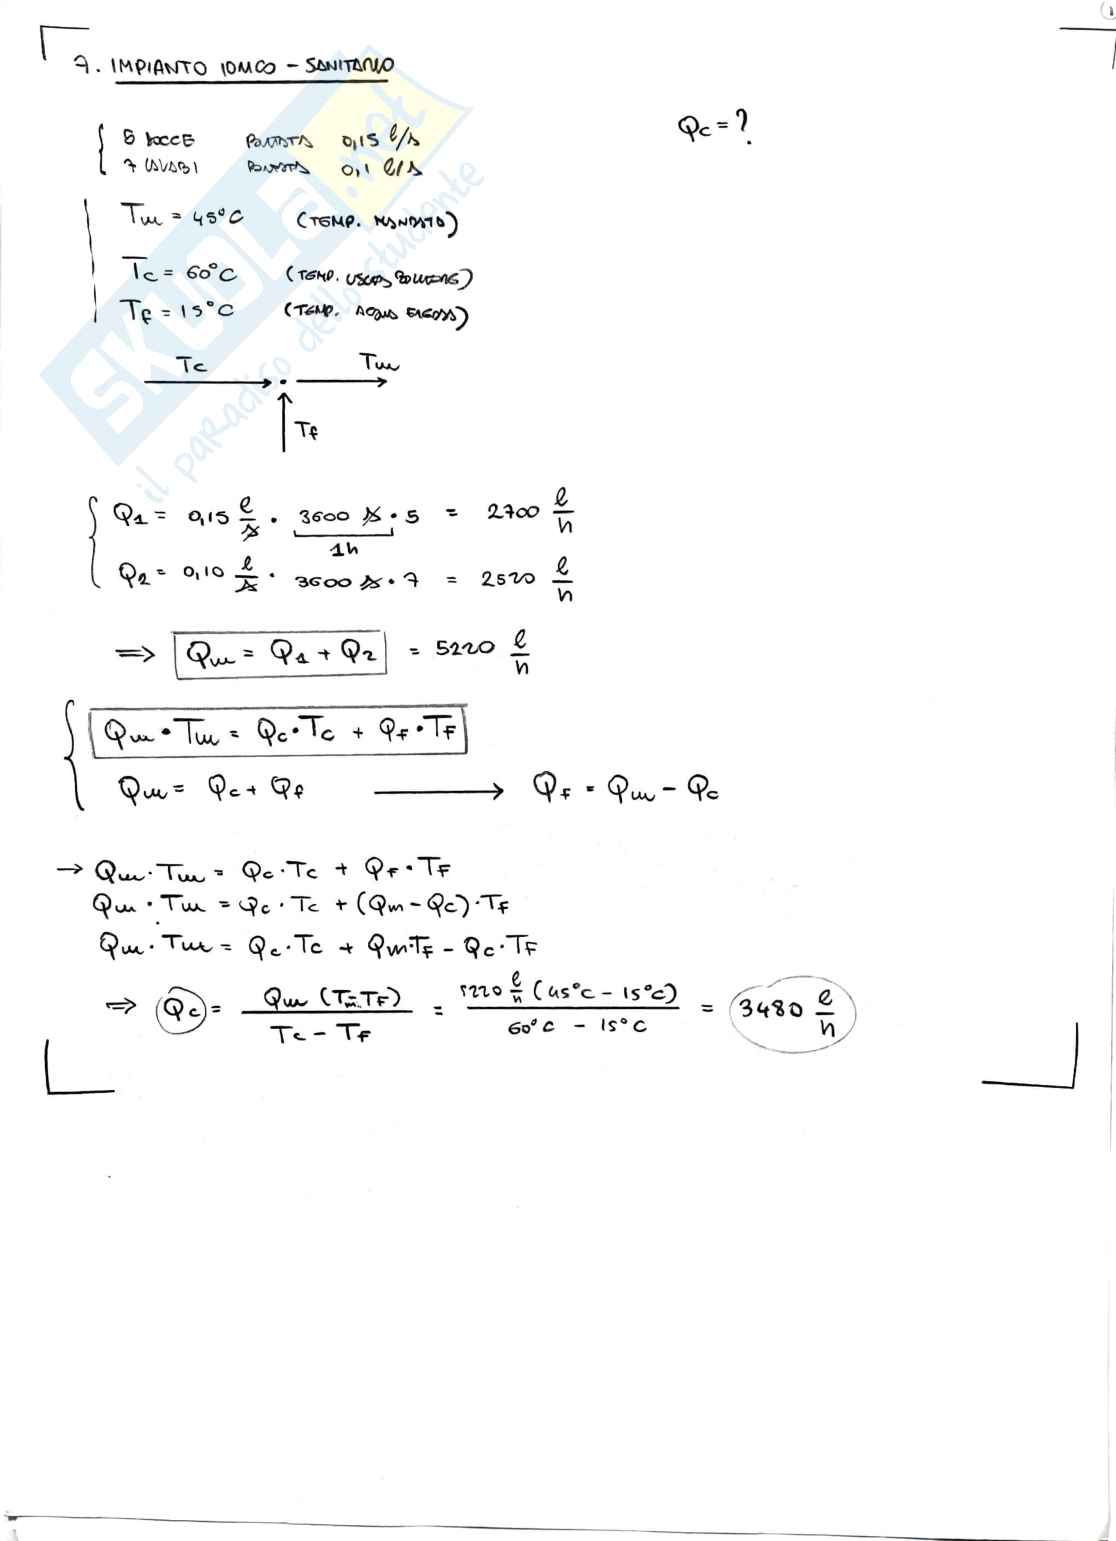 7. IMPIANTO IDRICO - SANITARIO
5 DOCCE PORTATA 0,15 l/s
Qc = ?
7 LAVABI PORTATA 0,1 l/s
Tm = 45°C (TEMP. MANDATA)
Tc = 60°C (TEMP. USCITA BOLLITORE)
Tf = 15°C (TEMP. ACQUA)
Tc Tm
Tf
Q1 = 0,15 l/s · 3600 s · 5 = 2700 l/h
1h
Q2 = 0,10 l/s · 3600 s · 7 = 2520 l/h
⇒ Qm = Q1 + Q2 = 5220 l/h
Qm · Tm = Qc · Tc + QF · TF
Qm = Qc + Qf → QF = Qm - Qc
→ Qm · Tm = Qc · Tc + QF · TF
Qm · Tm = Qc · Tc + (Qm - Qc) · TF
Qm · Tm = Qc · Tc + Qm · TF - Qc · TF
⇒ Qc = Qm (Tm - TF) / Tc - TF = 5220 l/h (45°C - 15°C) / 60°C - 15°C = 3480 l/h
SKUOLA.net
il paradiso dello studente